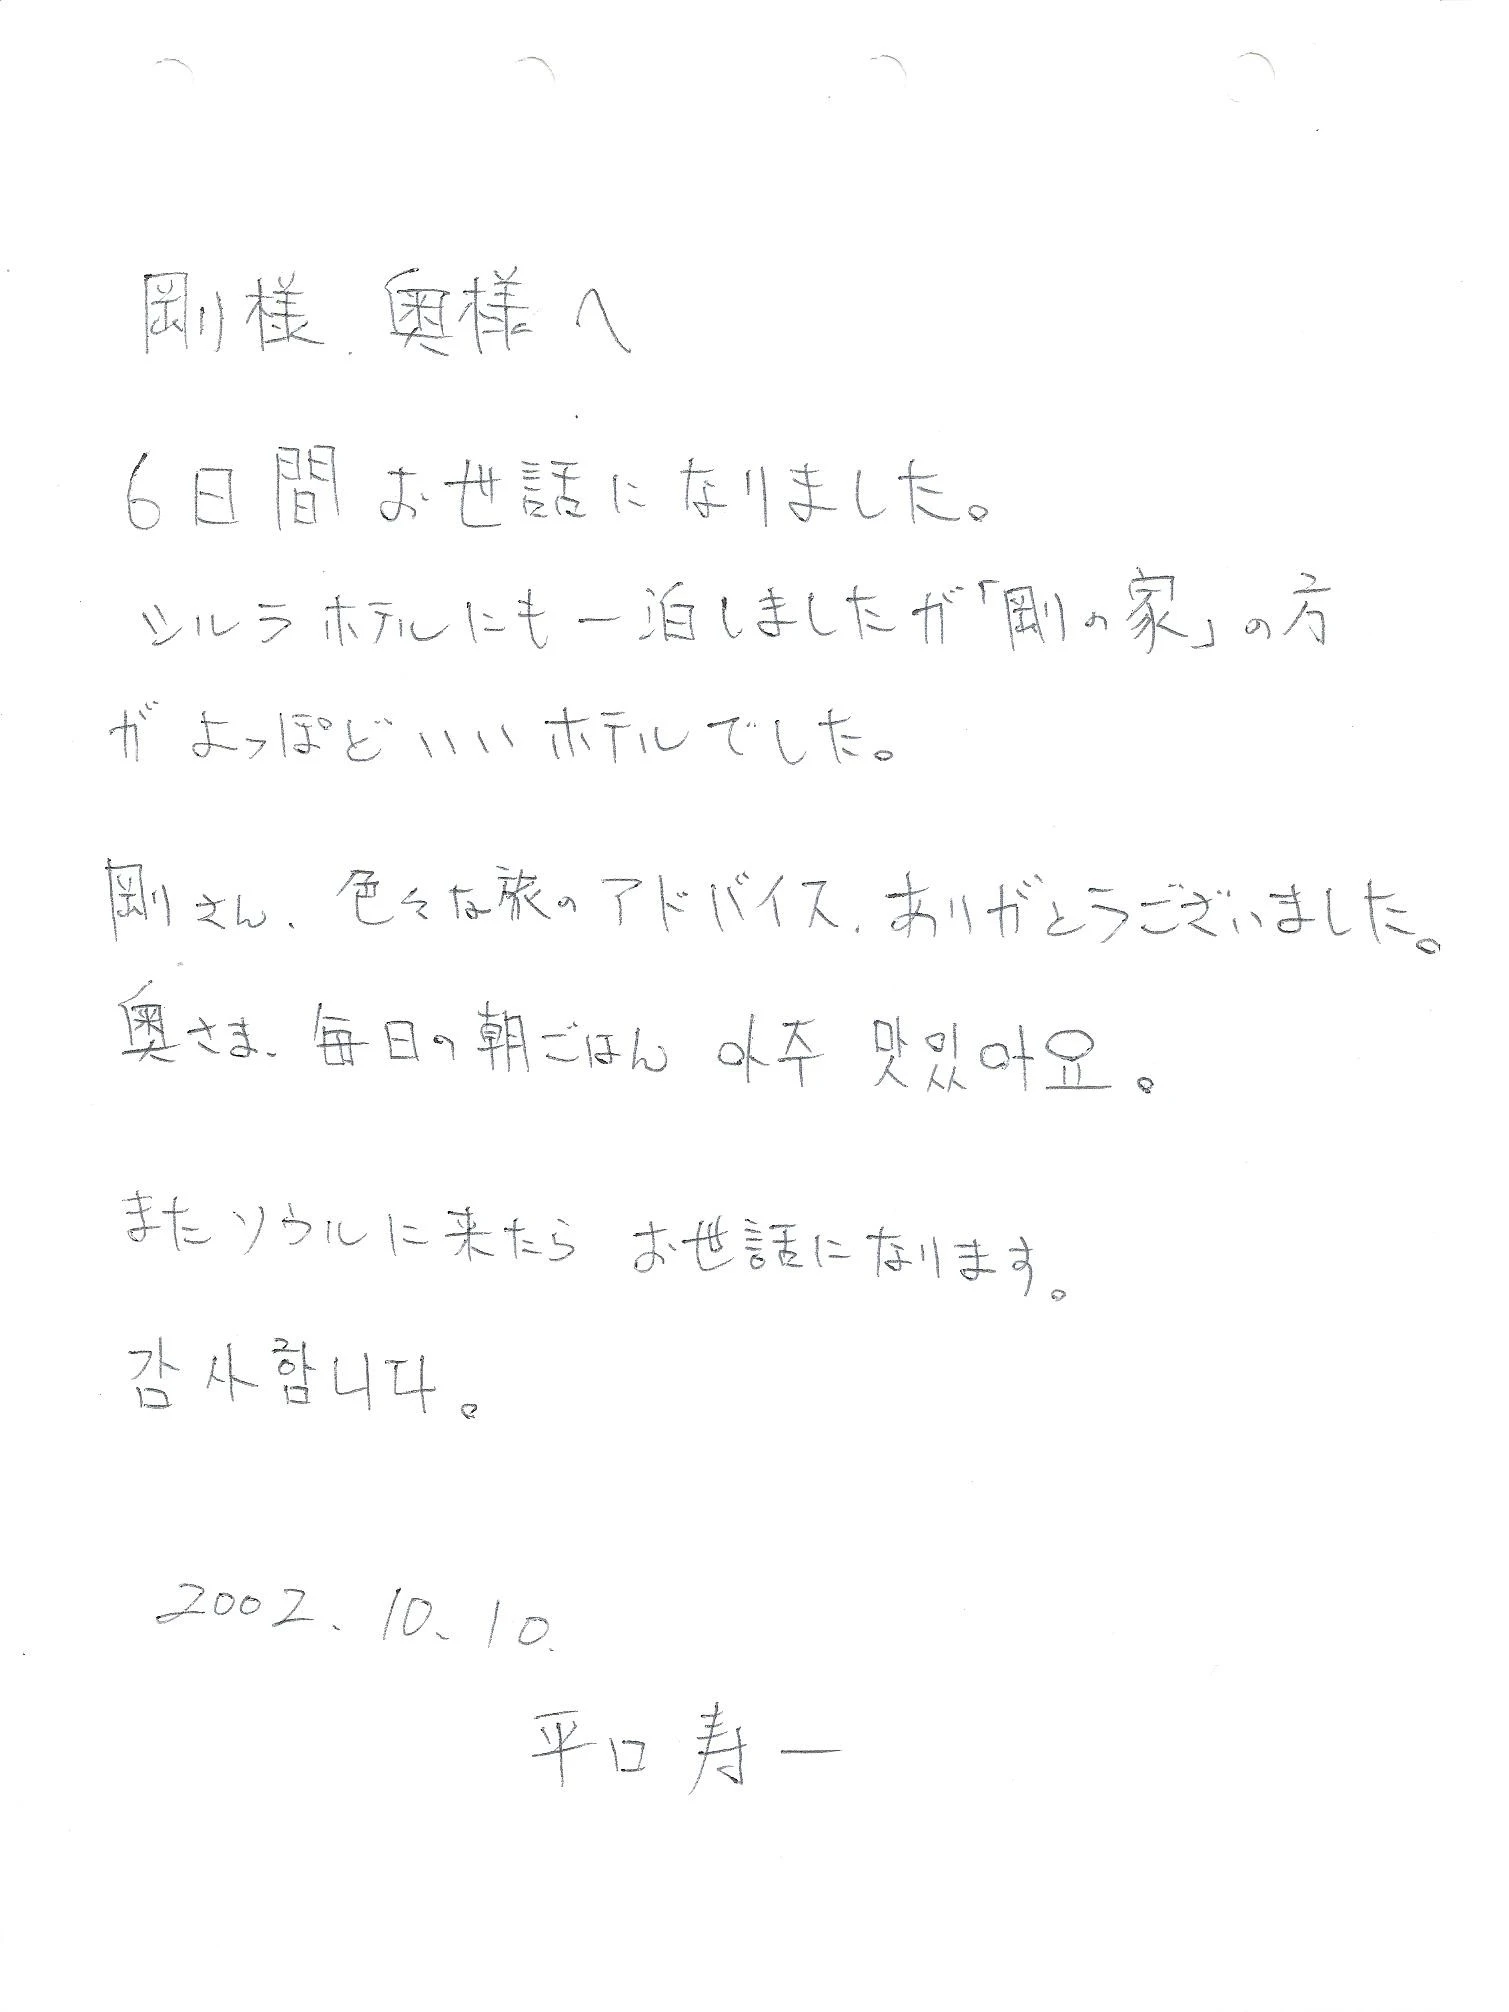 剛様、奥様へ
6日間お世話になりました。
シルラホテルにも一泊しましたが「剛の家」の方
がよっぽどいいホテルでした。
剛さん、色々な旅のアドバイス、ありがとうございました。
奥さま、毎日の朝ごはん 아주 맛있아요。
またソウルに来たら お世話になります。
감사합니다。
2002.10.10.
平口寿一